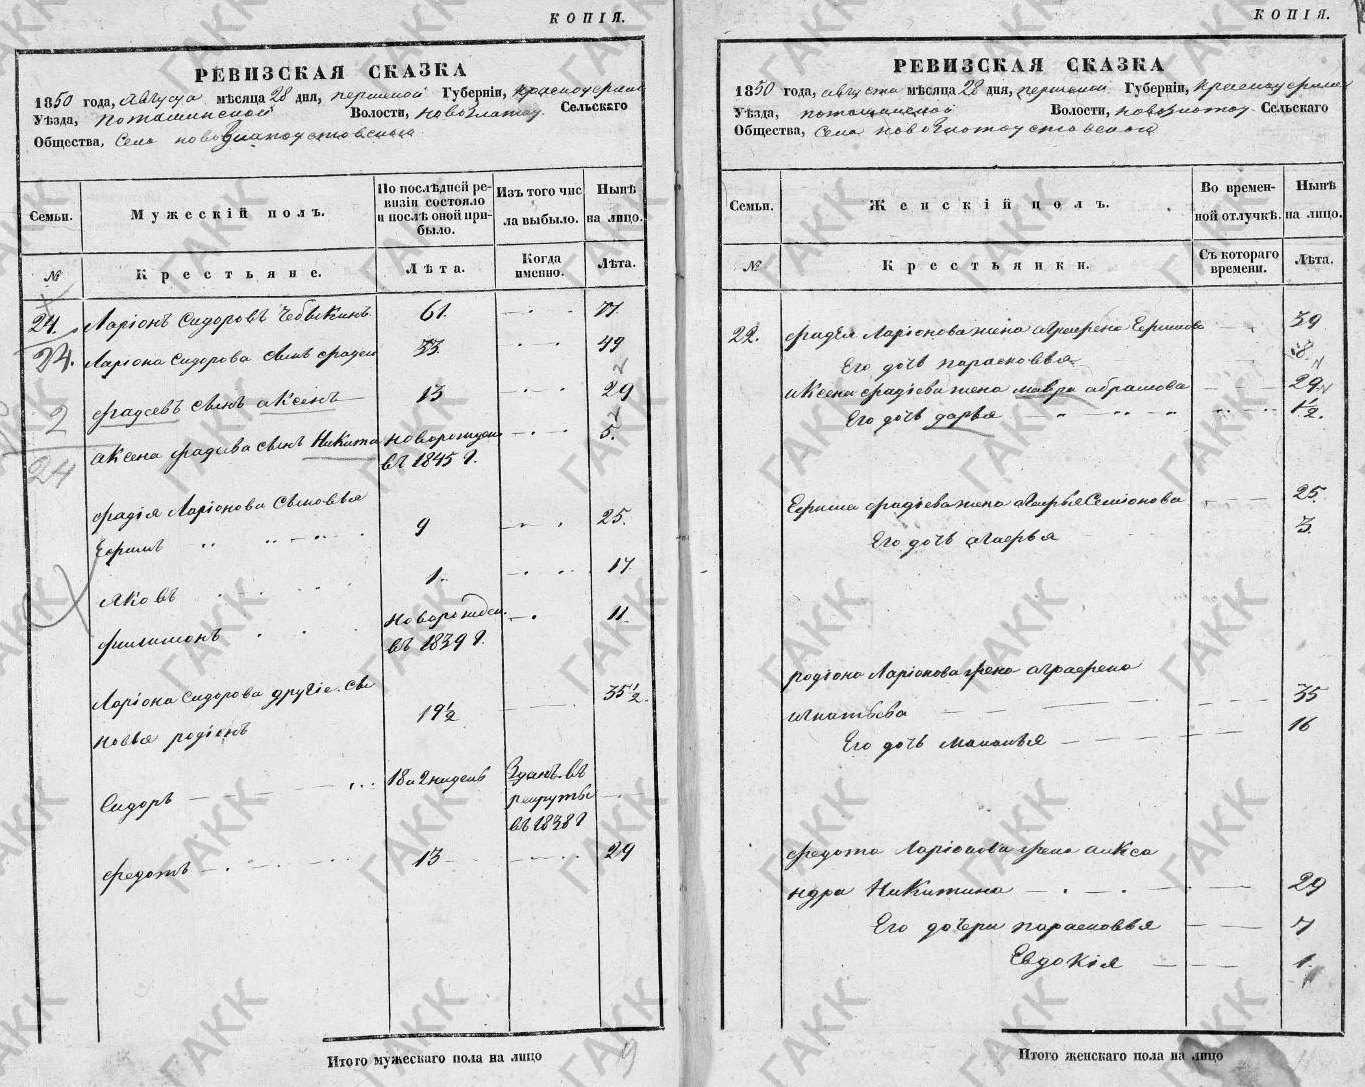 КОПІЯ.
РЕВИЗСКАЯ СКАЗКА
1850 года, Августа мѣсяца 28 дня, пермской Губерніи, Красноуфим
Уѣзда, поташинской Волости, новозлатоу Сельскаго
Общества, Села новозлатоустовскаго
Семьи. Мужескій полъ. По послѣдней ревизіи состояло и послѣ оной прибыло. Изъ того числа выбыло. Нынѣ на лицо.
№ Крестьяне. Лѣта. Когда именно. Лѣта.
24. Ларіонъ Сидоровъ Чебыкинъ 61. 77.
24. Ларіона Сидорова сынъ фадей 33. 49
фадеевъ сынъ аксенъ 13 29
2
24
аксена фадѣева сынъ Никита новорожден 5.
въ 1845 г.
фадія Ларіонова сыновья
Ефимъ 9 25.
яковъ 1. 17
филимонъ новорожден. 11.
въ 1839 г.
Ларіона Сидорова другіе сы
новья родіонъ 19½ 35½.
Сидоръ 18 и 2 недель Зданъ въ
рекруты
въ 1838 г
федотъ 13 29
Итого мужескаго пола на лицо
9
КОПІЯ.
РЕВИЗСКАЯ СКАЗКА
1850 года, августа мѣсяца 28 дня, пермской Губерніи, Красноуфим
Уѣзда, поташинской Волости, новозлотоу Сельскаго
Общества, Села новозлотоустовской
Семьи. Женскій полъ. Во временной отлучкѣ. Нынѣ на лицо.
№ Крестьянки. Съ котораго времени. Лѣта.
22. фадѣя Ларіонова жена аграфена Ефимова 39
Его дочь парасковья 8.
аксена фадіева жена мавра абрамова 29
Его дочь дарья 1½.
Ефима фадіева жена марья Семіонова 25
Его дочь марья 3.
родіона Ларіонова жена аграфена
игнатьева 35
Его дочь маланья 16
федота Ларіонова жена алекса
ндра Никитина 29
Его дочери парасковья 7
Евдокія 1.
Итого женскаго пола на лицо
ГАКК